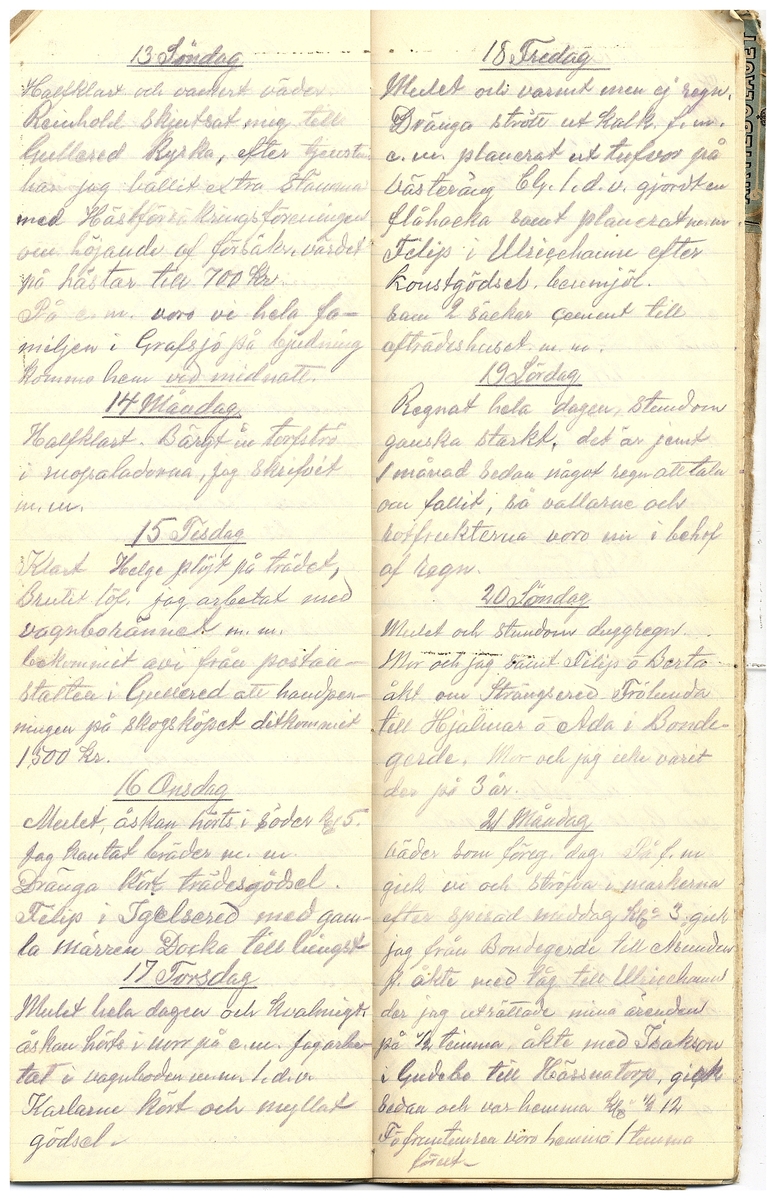 13 Söndag
Halfklart och vackert väder
Reinhold skjutsat mig till
Gullered Kyrka, efter tjensten
har jag hållit extra stämma
med Hästförsäkringsföreningen
om höjande af försäkr. värdet
på hästar till 700 kr.
På e. m. voro vi hela fa-
miljen i Grafsjö på bjudning
kommo hem ved midnatt.
14 Måndag
Halfklart. Bärgt in torfströ
i mossaladorna, jag skrifvit
m. m.
15 Tisdag
Klart Helge plöjt på trädet,
brutit löf. jag arbetat med
m. m.
bekommit avi från postan-
stalten i Gullered att handpen-
ningen på skogsköpet ditkommit
1,500 kr.
16 Onsdag
Mulet, åskan hörts i söder kl 5.
Jag kantat bräder m. m.
Dränga kört trädesgödsel.
Filip i Igelsered med gam-
la märren Docka till hingst
17 Torsdag
Mulet hela dagen och kvalmigt
åskan hörts i norr på e. m. Jag arbe-
tat i vagnboden m. m. l. d. v.
Karlarne kört och myllat
gödsel
18 Fredag
Mulet och varmt men ej regn.
Dränga strött ut kalk f. m.
e. m. planerat ut tufvor på
västeräng l. d. v. gjordt en
flåhacka samt planerat m. m
Filip i Ulricehamn efter
Konstgödsel. benmjöl.
sam 2 säcker cement till
afträdeshuset m. m.
19 Lördag
Regnat hela dagen, stundom
ganska starkt, det är jemt
1 månad sedan något regn att tala
om fallit, så vallarne och
rotfrukterna voro nu i behof
af regn.
20 Söndag
Mulet och stundom duggregn
Mor och jag samt Filip o Berta
åkt om Strängsered Frölunda
till Hjalmar o Ada i Bonde-
gerde. Mor och jag icke varit
der på 3 år.
21 Måndag
väder som föreg. dag. På f. m
gick vi och ströfva i markerna
efter spisad middag kl 3 gick
jag från Bondegerde till Åsunden
åkte med tåg till Ulricehamn
der jag uträttade mina ärenden
på 1/2 timma, åkte med Isakson
i Gudebo till Hässnatorp, gick
sedan och var hemma kl 1/2 12
voro hemma 1 timma
förut